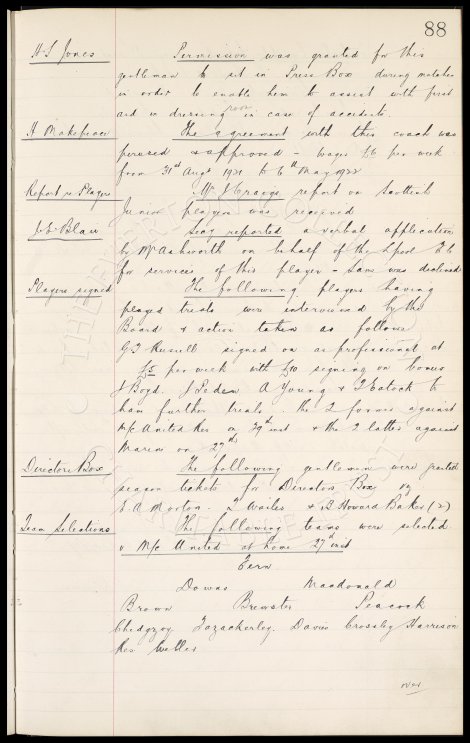 88
H S Jones Permission was granted for this
gentleman to sit in Press Box during matches
in order to enable him to assist with first
aid in dressing room in case of accidents.
H Makepeace The agreement with this coach was
perused & approved - wages £6 per week
from 31st Augt 1921 to 6th May 1922
Report re Players Mr J Craggs report on Scottish
Junior players was received
J. S. Blair Secy reported a verbal application
by Mr Ashworth on behalf of the Lpool F.C
for services of this player - Same was declined
Players signed The following players having
played trials were interviewed by the
Board & action taken as follows
G J Russell signed on as professional at
£5 per week with £10 signing on bonus
J Boyd. J Peden A Young & J Eatock to
have further trials. the 2 former against
M/c United Res on 29th inst & the 2 latter against
Marine on 27th
Directors Box The following gentlemen were granted
season tickets for Directors Box
E. A Morton. & B Howard Baker (2)
Team Selections The following teams were selected
v M/c United at home 27th inst
Fern
Downs Macdonald
Brown Brewster Peacock
Chedgzoy Fazackerley. Davies Crossley Harrison
Res Weller
over